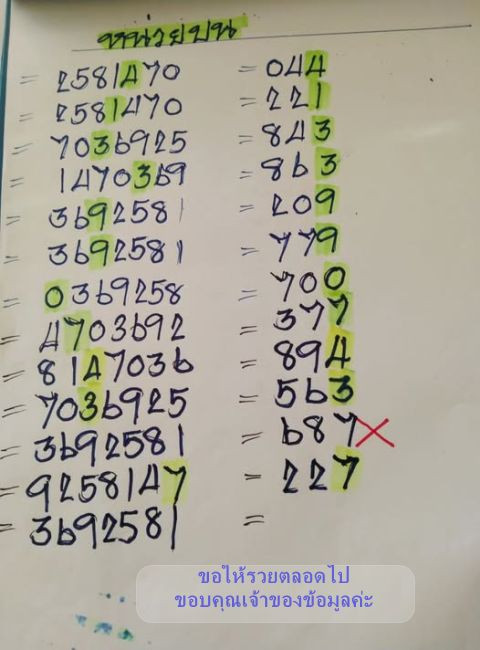 หน่วยบน
= 2581470 = 044
= 2581470 = 221
= 7036925 = 843
= 1470369 = 863
= 3692581 = 209
= 3692581 = 779
= 0369258 = 700
= 4703692 = 377
= 8147036 = 894
= 7036925 = 563
= 3692581 = 687 X
= 9258147 = 227
= 3692581 =
ขอให้รวยตลอดไป
ขอบคุณเจ้าของข้อมูลค่ะ